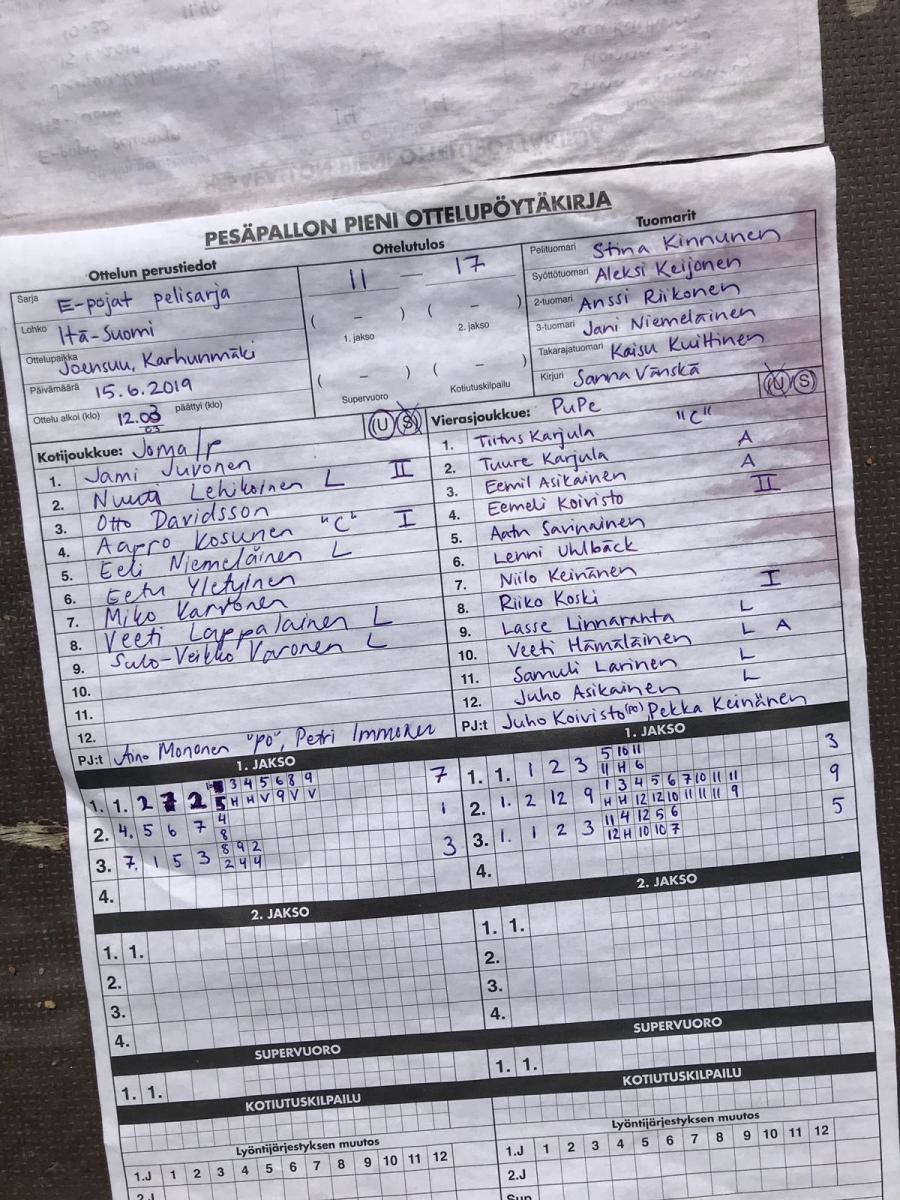 PESÄPALLON PIENI OTTELUPÖYTÄKIRJA
Ottelun perustiedot
Sarja E-pojat pelisarja
Lohko Itä-Suomi
Ottelupaikka Joensuu, Karhunmäki
Päivämäärä 15.6.2019
Ottelu alkoi (klo) 12.03 päättyi (klo)
03
U S
Ottelutulos
11 — 17
( – ) ( – )
1. jakso 2. jakso
( – ) ( – )
Supervuoro Kotiutuskilpailu
Tuomarit
Pelituomari Stina Kinnunen
Syöttötuomari Aleksi Keijonen
2-tuomari Anssi Riikonen
3-tuomari Jani Niemeläinen
Takarajatuomari Kaisu Kuittinen
Kirjuri Sanna Vänskä
U S
Kotijoukkue: Joma/r
1. Jami Juvonen
2. Nuuti Lehikoinen L II
3. Otto Davidsson
4. Aapro Kosunen "C" I
5. Eeli Niemeläinen L
6. Eetu Yletyinen
7. Miko Karvonen
8. Veeti Lappalainen L
9. Sulo-Veikko Varonen L
10.
11.
12.
PJ:t Aino Mononen "po", Petri Immonen
Vierasjoukkue: PuPe
1. Tiitus Karjula "C"
2. Tuure Karjula A
3. Eemil Asikainen A
4. Eemeli Koivisto II
5. Aatu Savinainen
6. Lenni Uhlbäck
7. Niilo Keinänen
8. Riiko Koski I
9. Lasse Linnaranta L
10. Veeti Hämäläinen L A
11. Samuli Larinen L
12. Juho Asikainen L
PJ:t Juho Koivisto (po), Pekka Keinänen
1. JAKSO
3 4 5 6 8 9
1. 1. 2 2 5 H H V 9 V V 7
4
2. 4. 5 6 7 8 1
8 9 2
3. 7. 1 5 3 2 4 4 3
4.
2. JAKSO
1. 1.
2.
3.
4.
SUPERVUORO
1. 1.
KOTIUTUSKILPAILU
Lyöntijärjestyksen muutos
1.J 1 2 3 4 5 6 7 8 9 10 11 12
2.J
1. JAKSO
5 10 11
1. 1. 1 2 3 11 H 6 3
1 3 4 5 6 7 10 11 11
2. 1. 2 12 9 H H 12 12 10 11 11 11 9 9
11 4 12 5 6
3. 1. 1 2 3 12 H 10 10 7 5
4.
2. JAKSO
1. 1.
2.
3.
4.
SUPERVUORO
1. 1.
KOTIUTUSKILPAILU
Lyöntijärjestyksen muutos
1.J 1 2 3 4 5 6 7 8 9 10 11 12
2.J
Sup